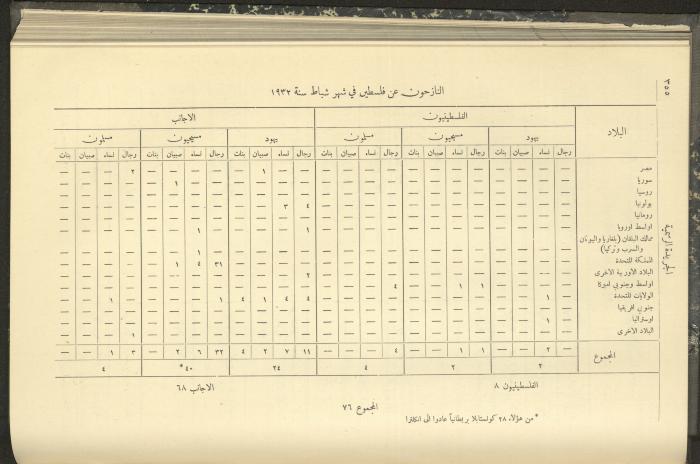 ٣٥٥
الجريدة الرسمية
النازحون عن فلسطين في شهر شباط سنة ١٩٣٢
البلاد الفلسطينيون الاجانب
يهود مسيحيون مسلمون يهود مسيحيون مسلمون
رجال نساء صبيان بنات رجال نساء صبيان بنات رجال نساء صبيان بنات رجال نساء صبيان بنات رجال نساء صبيان بنات رجال نساء صبيان بنات
مصر — — — — — — — — — — — — — — ١ — — — — — ٢ — — —
سوريا — — — — — — — — — — — — — — — — — — ١ — — — — —
روسيا — — — — — — — — — — — — — — — — — — — — — — — —
بولونيا — — — — — — — — — — — — ٤ ٣ — — — — — — — — — —
رومانيا — — — — — — — — — — — — — — — — — — — — — — — —
اواسط اوروبا — — — — — — — — — — — — ١ — — — — ١ — — — — — —
ممالك البلقان (بلغاريا واليونان
والسرب وتركيا) — — — — — — — — — — — — — — — — — ١ — — — — — —
المملكة المتحدة — — — — — — — — — — — — — — — — ٣١ ٤ ١ — — — — —
البلاد الاوربية الاخرى — — — — — — — — — — — — ٢ — — — — — — — — — — —
اواسط وجنوبي اميركا — — — — ١ ١ — — ٤ — — — — — — — — — — — — — — —
الولايات المتحدة — ١ — — — — — — — — — — ٤ ٤ ١ ٤ ١ — — — — ١ — —
جنوبي افريقيا — — — — — — — — — — — — — — — — — — — — — — — —
اوستراليا — ١ — — — — — — — — — — — — — — — — — — — — — —
البلاد الاخرى — — — — — — — — — — — — — — — — — — — — ١ — — —
المجموع — ٢ — — ١ ١ — — ٤ — — — ١١ ٧ ٢ ٤ ٣٢ ٦ ٢ — ٣ ١ — —
٢ ٢ ٤ ٢٤ ٤٠* ٤
الفلسطينيون ٨ الاجانب ٦٨
المجموع ٧٦
*من هؤلاء ٢٨ كونستابلا بريطانياً عادوا الى انكلترا